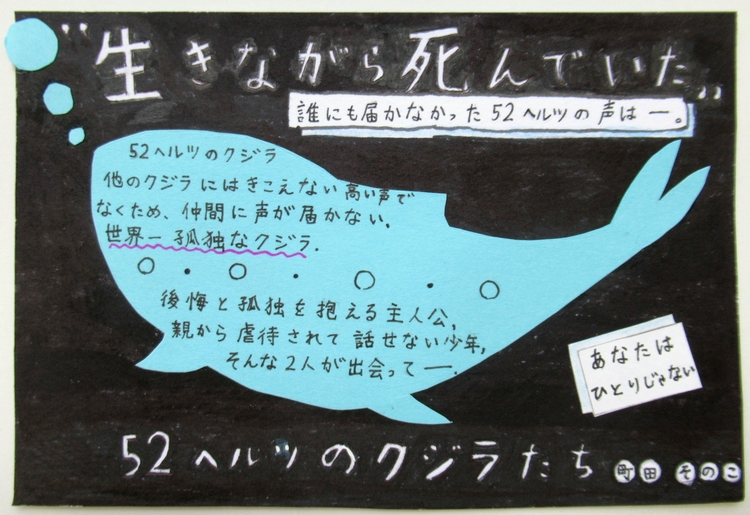 "生きながら死んでいた"
誰にも届かなかった52ヘルツの声は―。
52ヘルツのクジラ
他のクジラにはきこえない高い声で
なくため、仲間に声が届かない、
世界一孤独なクジラ.
後悔と孤独を抱える主人公,
親から虐待されて話せない少年,
そんな2人が出会って―.
あなたは
ひとりじゃない
52ヘルツのクジラたち 町田そのこ